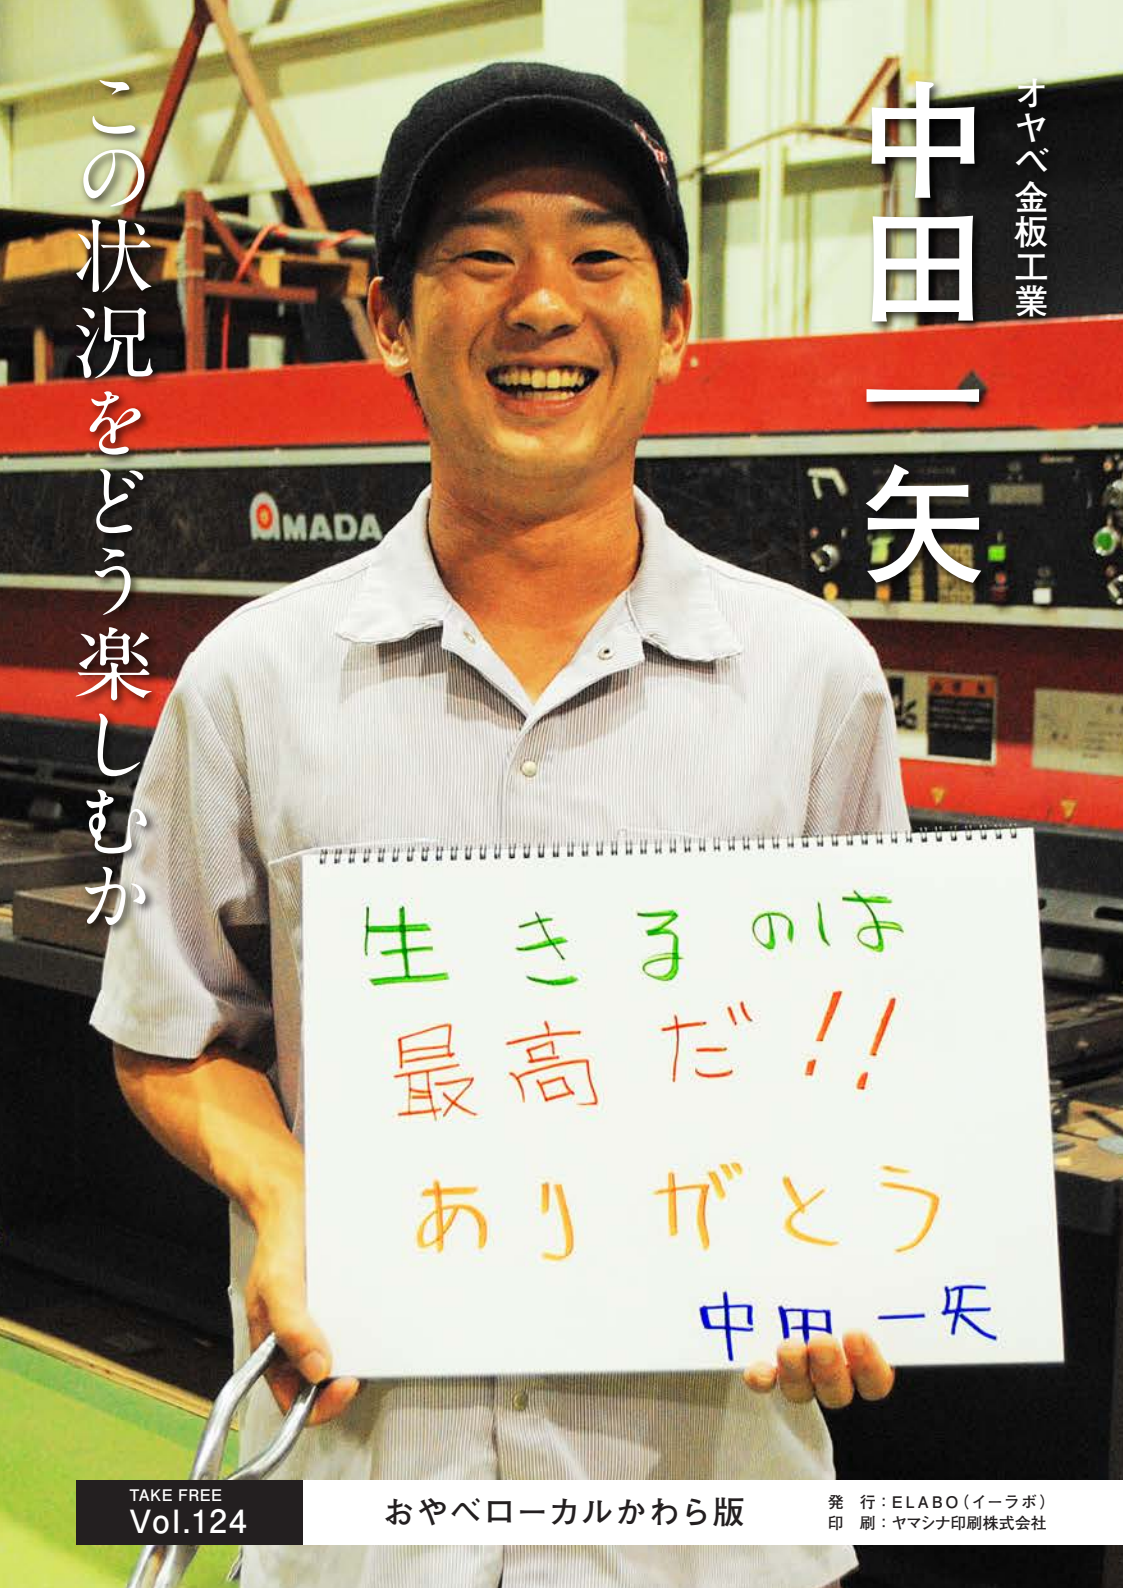 オヤベ金板工業
中田一矢
この状況をどう楽しむか
AMADA
生きるのは
最高だ!!
ありがとう
中田一矢
TAKE FREE
Vol.124
おやべローカルかわら版
発　行：ELABO（イーラボ）
印　刷：ヤマシナ印刷株式会社